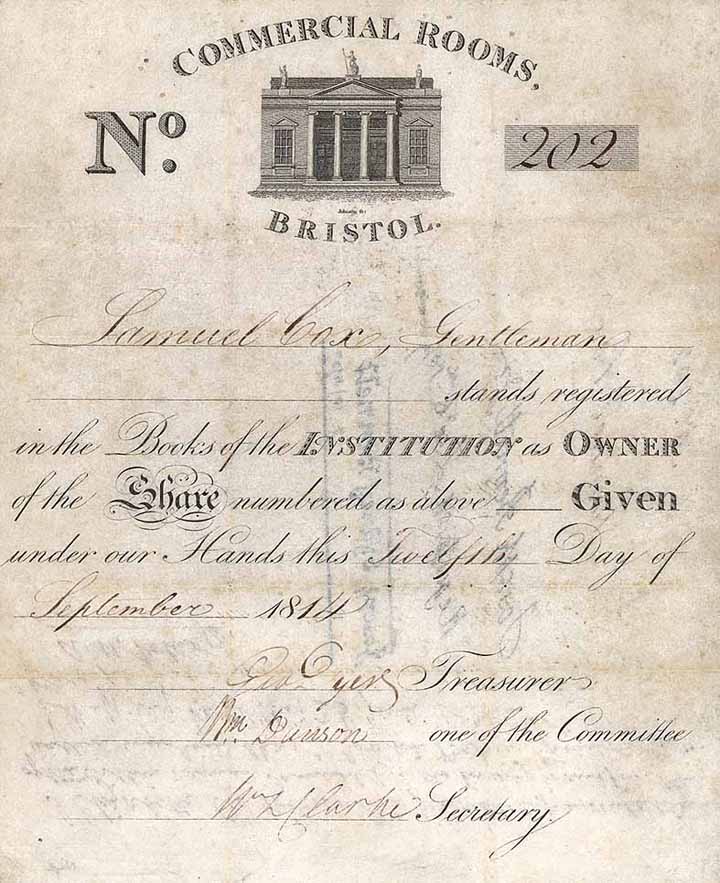 COMMERCIAL ROOMS,
No. 202
BRISTOL.
Samuel Cox, Gentleman
stands registered
in the Books of the INSTITUTION as OWNER
of the Share numbered as above Given
under our Hands this Twelfth Day of
September 1814
Geo Dyer Treasurer
Wm. Dawson one of the Committee
Wm Clarke Secretary